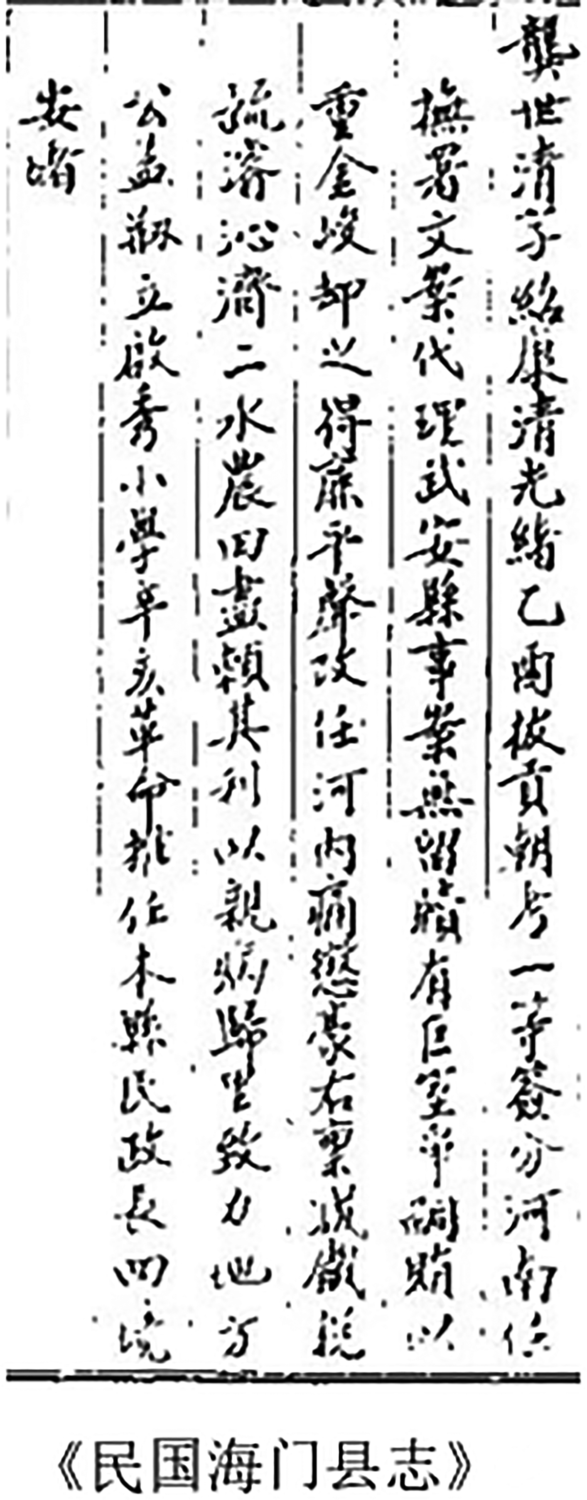 龔世清字紹康清光緒乙酉拔貢朝考一等簽分河南任
撫署文案代理武安縣事案無留牘有巨室爭嗣賄以
重金峻却之得廉平聲改任河內痛懲豪右稟減鹽稅
疏濬沁濟二水農田盡賴其利以親病歸里致力地方
公益剙立啟秀小學辛亥革命推任本縣民政長四境
安堵
《民国海门县志》